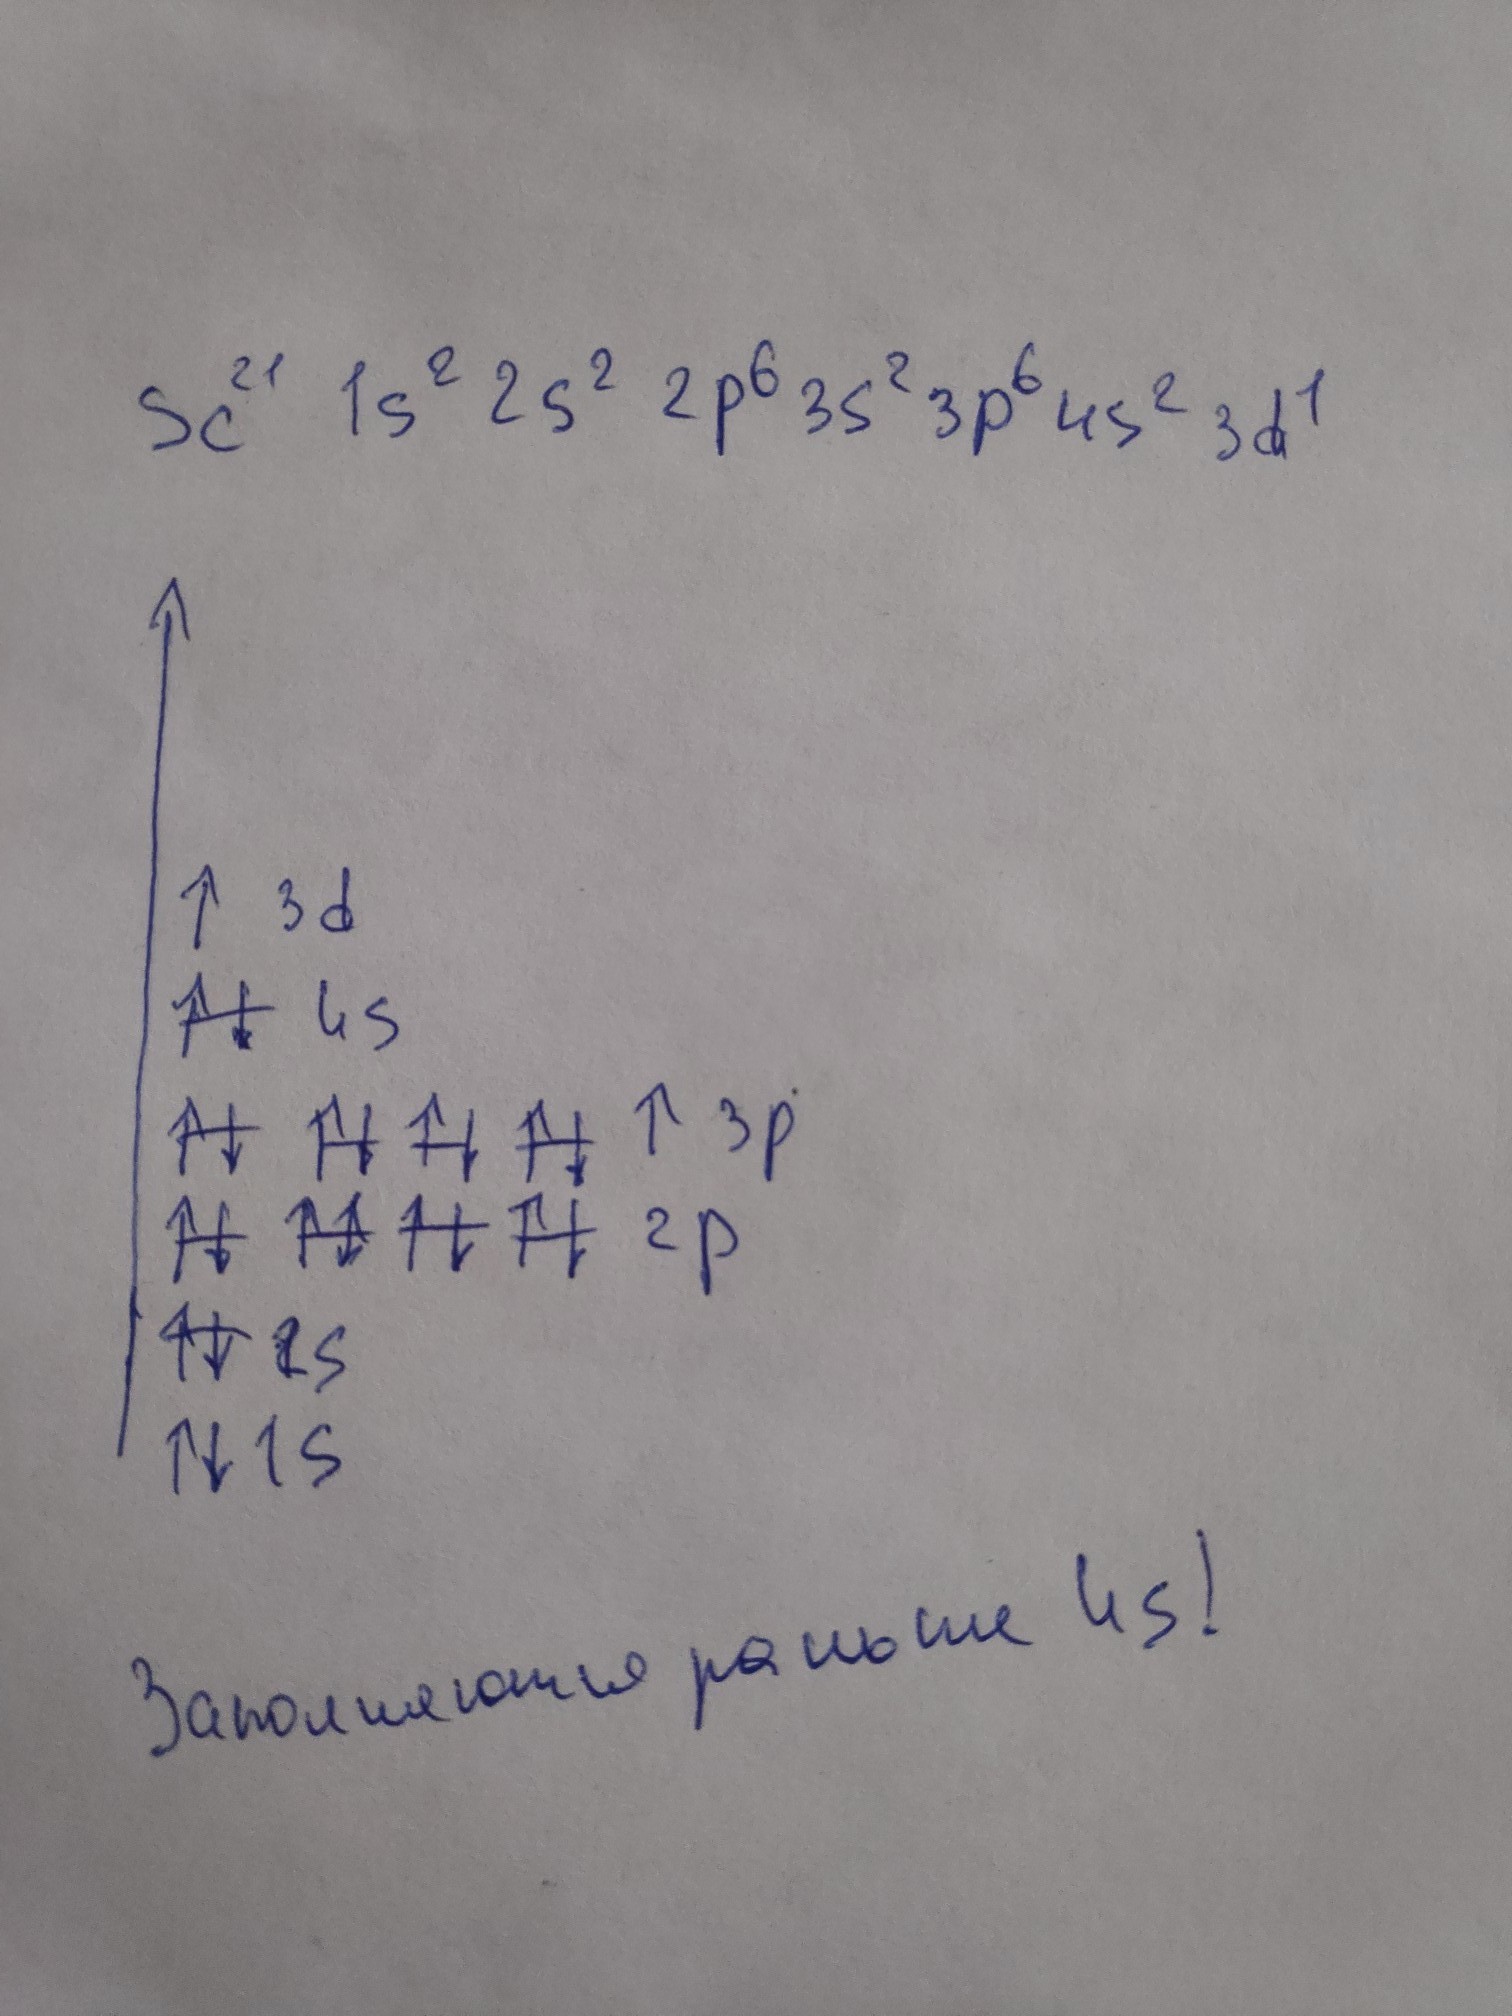 Sc²¹ 1s² 2s² 2p⁶ 3s² 3p⁶ 4s² 3d¹
↑ 3d
↑↓ 4s
↑↓ ↑↓ ↑↓ ↑↓ ↑ 3p
↑↓ ↑↓ ↑↓ ↑↓ 2p
↑↓ 2s
↑↓ 1s
Заполняются раньше 4s!